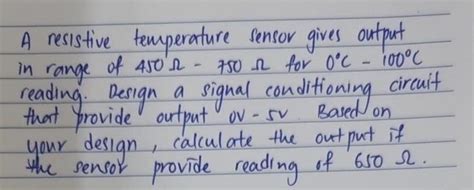 A resistive temperature sensor gives output
in range of 450 Ω - 750 Ω for 0°C - 100°C
reading. Design a signal conditioning circuit
that provide output 0V - 5V. Based on
your design, calculate the output if
the sensor provide reading of 650 Ω.